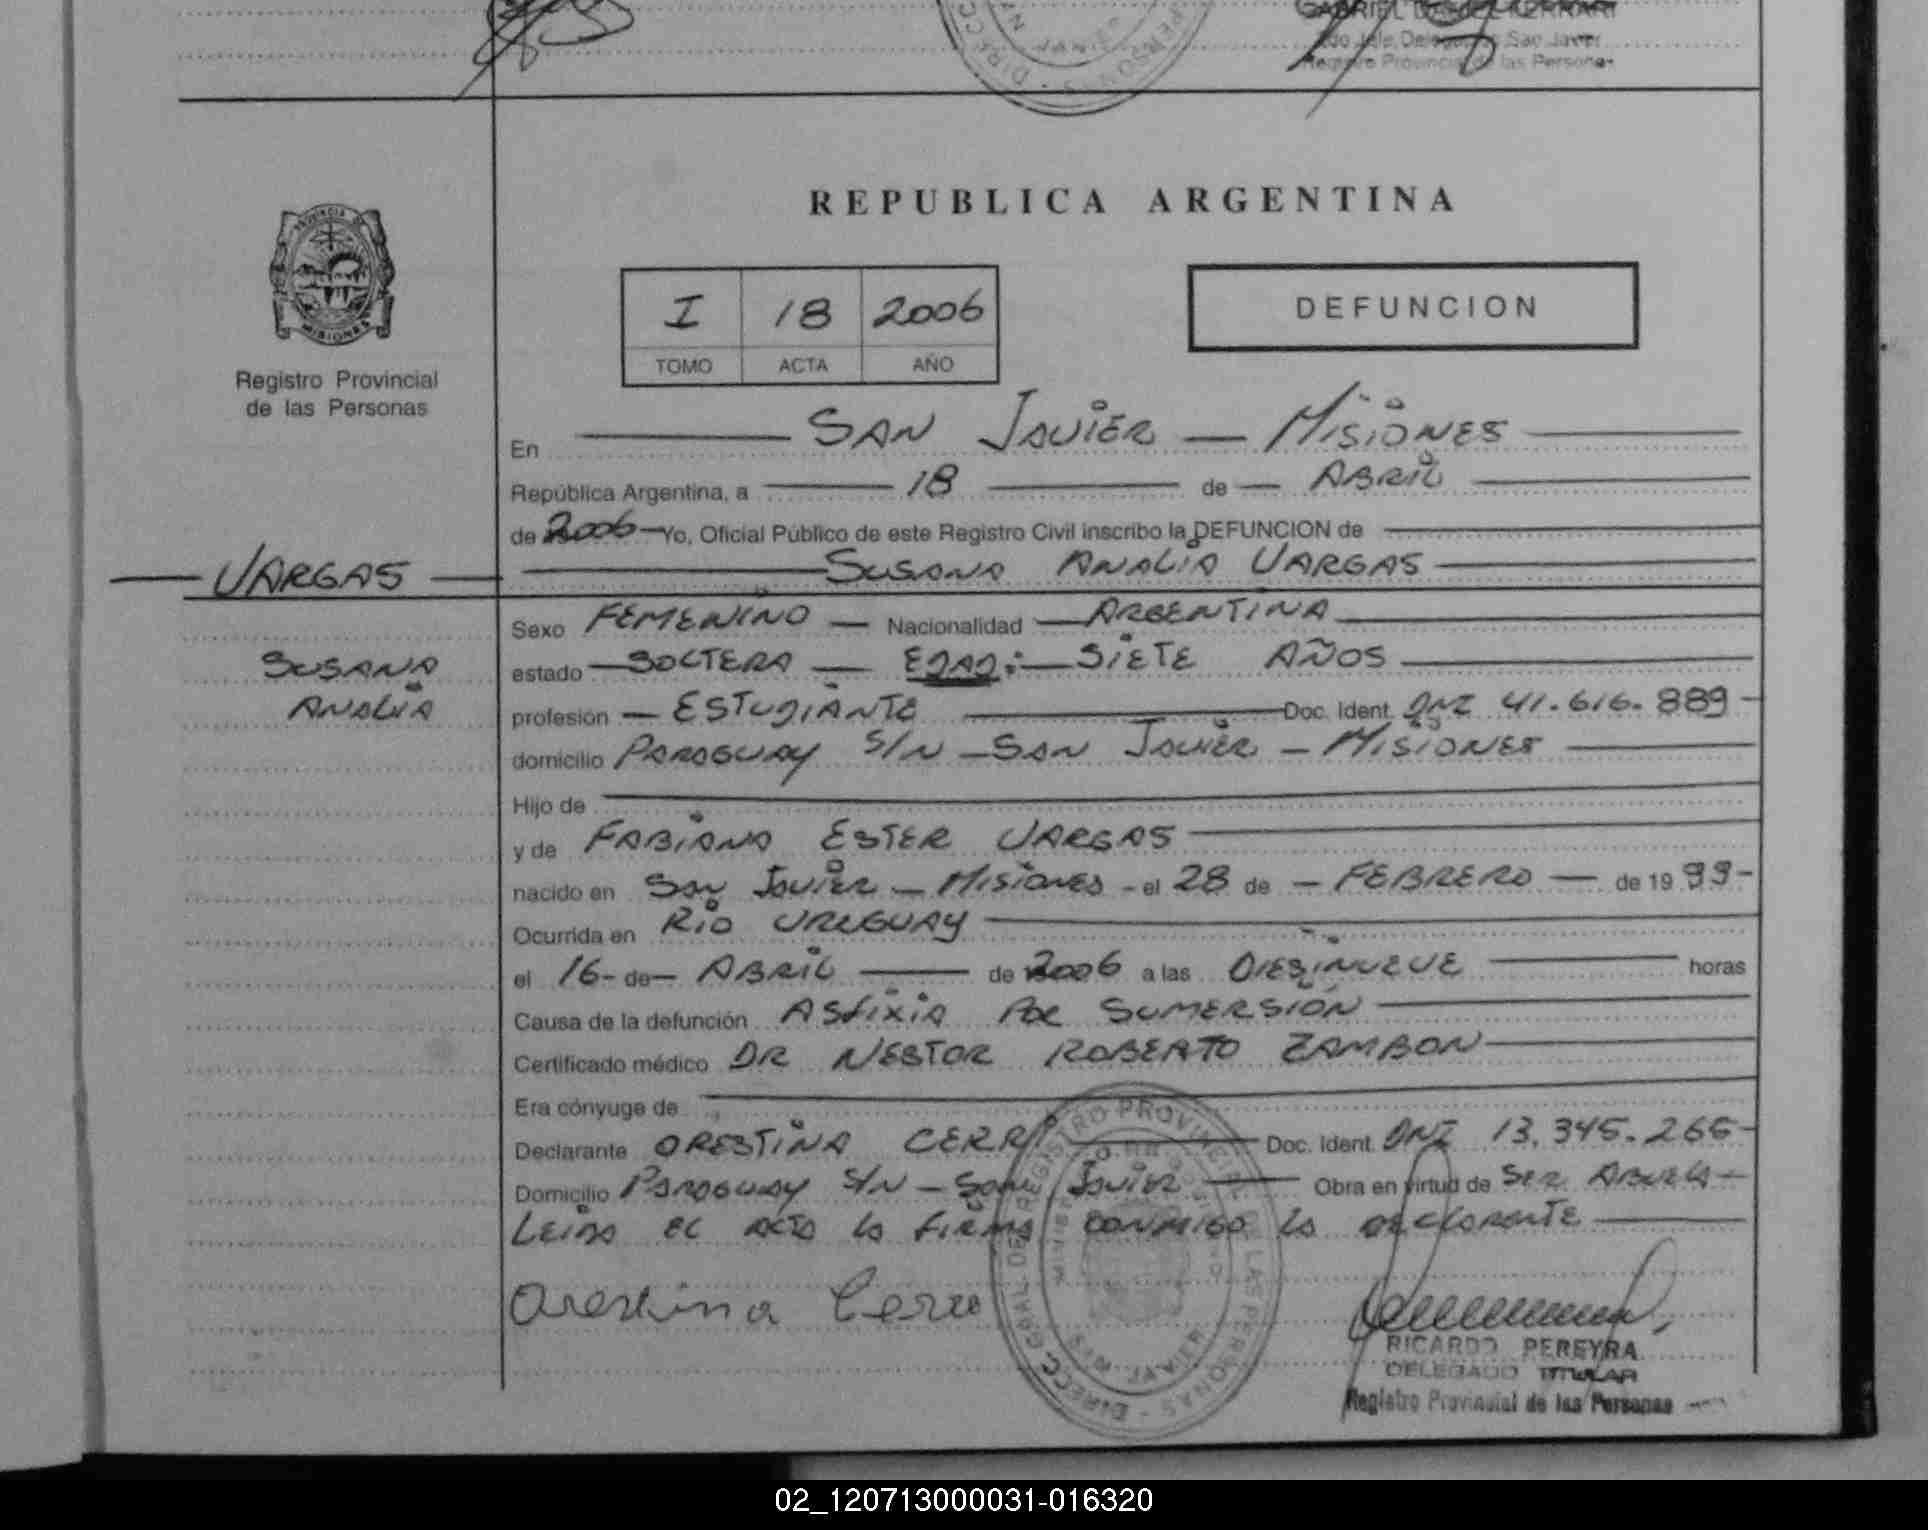 GABRIEL DANIEL FERRARI
2do Jefe Delegación San Javier
Registro Provincial de las Personas
REPUBLICA ARGENTINA
PROVINCIA DE
MISIONES
Registro Provincial
de las Personas
I 18 2006
TOMO ACTA AÑO
DEFUNCION
En SAN JAVIER — MISIONES
República Argentina, a 18 de ABRIL
de 2006 Yo, Oficial Público de este Registro Civil inscribo la DEFUNCION de
VARGAS
SUSANA ANALIA VARGAS
SUSANA
ANALIA
Sexo FEMENINO — Nacionalidad — ARGENTINA
estado — SOLTERA — EDAD: — SIETE AÑOS
profesión — ESTUDIANTE Doc. Ident. DNI 41.616.889 -
domicilio PARAGUAY S/N — SAN JAVIER — MISIONES
Hijo de
y de FABIANA ESTER VARGAS
nacido en SAN JAVIER — MISIONES - el 28 de — FEBRERO — de 19 99 -
Ocurrida en RIO URUGUAY
el 16 - de — ABRIL — de 2006 a las DIESINUEVE horas
Causa de la defunción ASFIXIA POR SUMERSIÓN
Certificado médico DR NESTOR ROBERTO ZAMBON
Era cónyuge de
Declarante ORESTINA CERRO Doc. Ident. DNI 13.345.266 -
Domicilio PARAGUAY S/N — SAN JAVIER — Obra en virtud de SER ABUELA —
LEIDA EL ACTA LA FIRMA CONMIGO LA DECLARANTE
Orestina Cerro
DIRECC. GRAL. DEL REGISTRO PROVINCIAL DE LAS PERSONAS
SAN JAVIER
RICARDO PEREYRA
DELEGADO TITULAR
Registro Provincial de las Personas
02_120713000031-016320